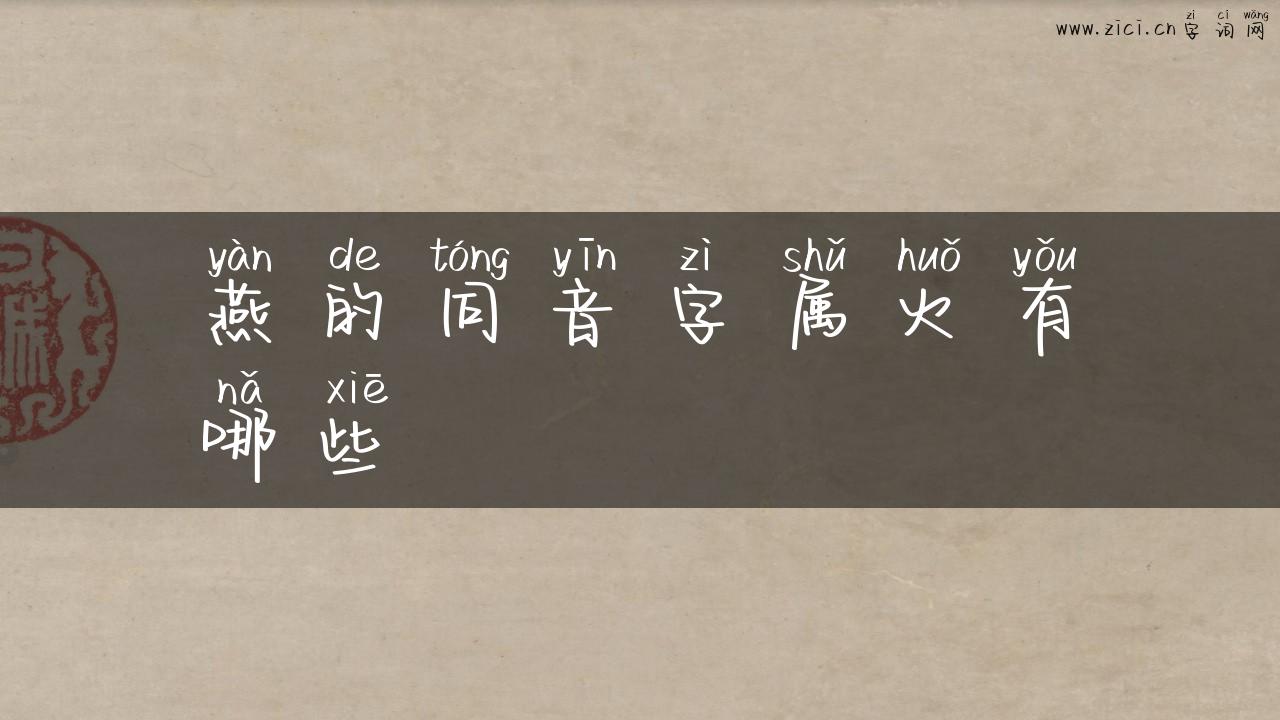 zì cí wǎng
www.zici.cn字词网
yàn de tóng yīn zì shǔ huǒ yǒu
燕的同音字属火有
nǎ xiē
哪些